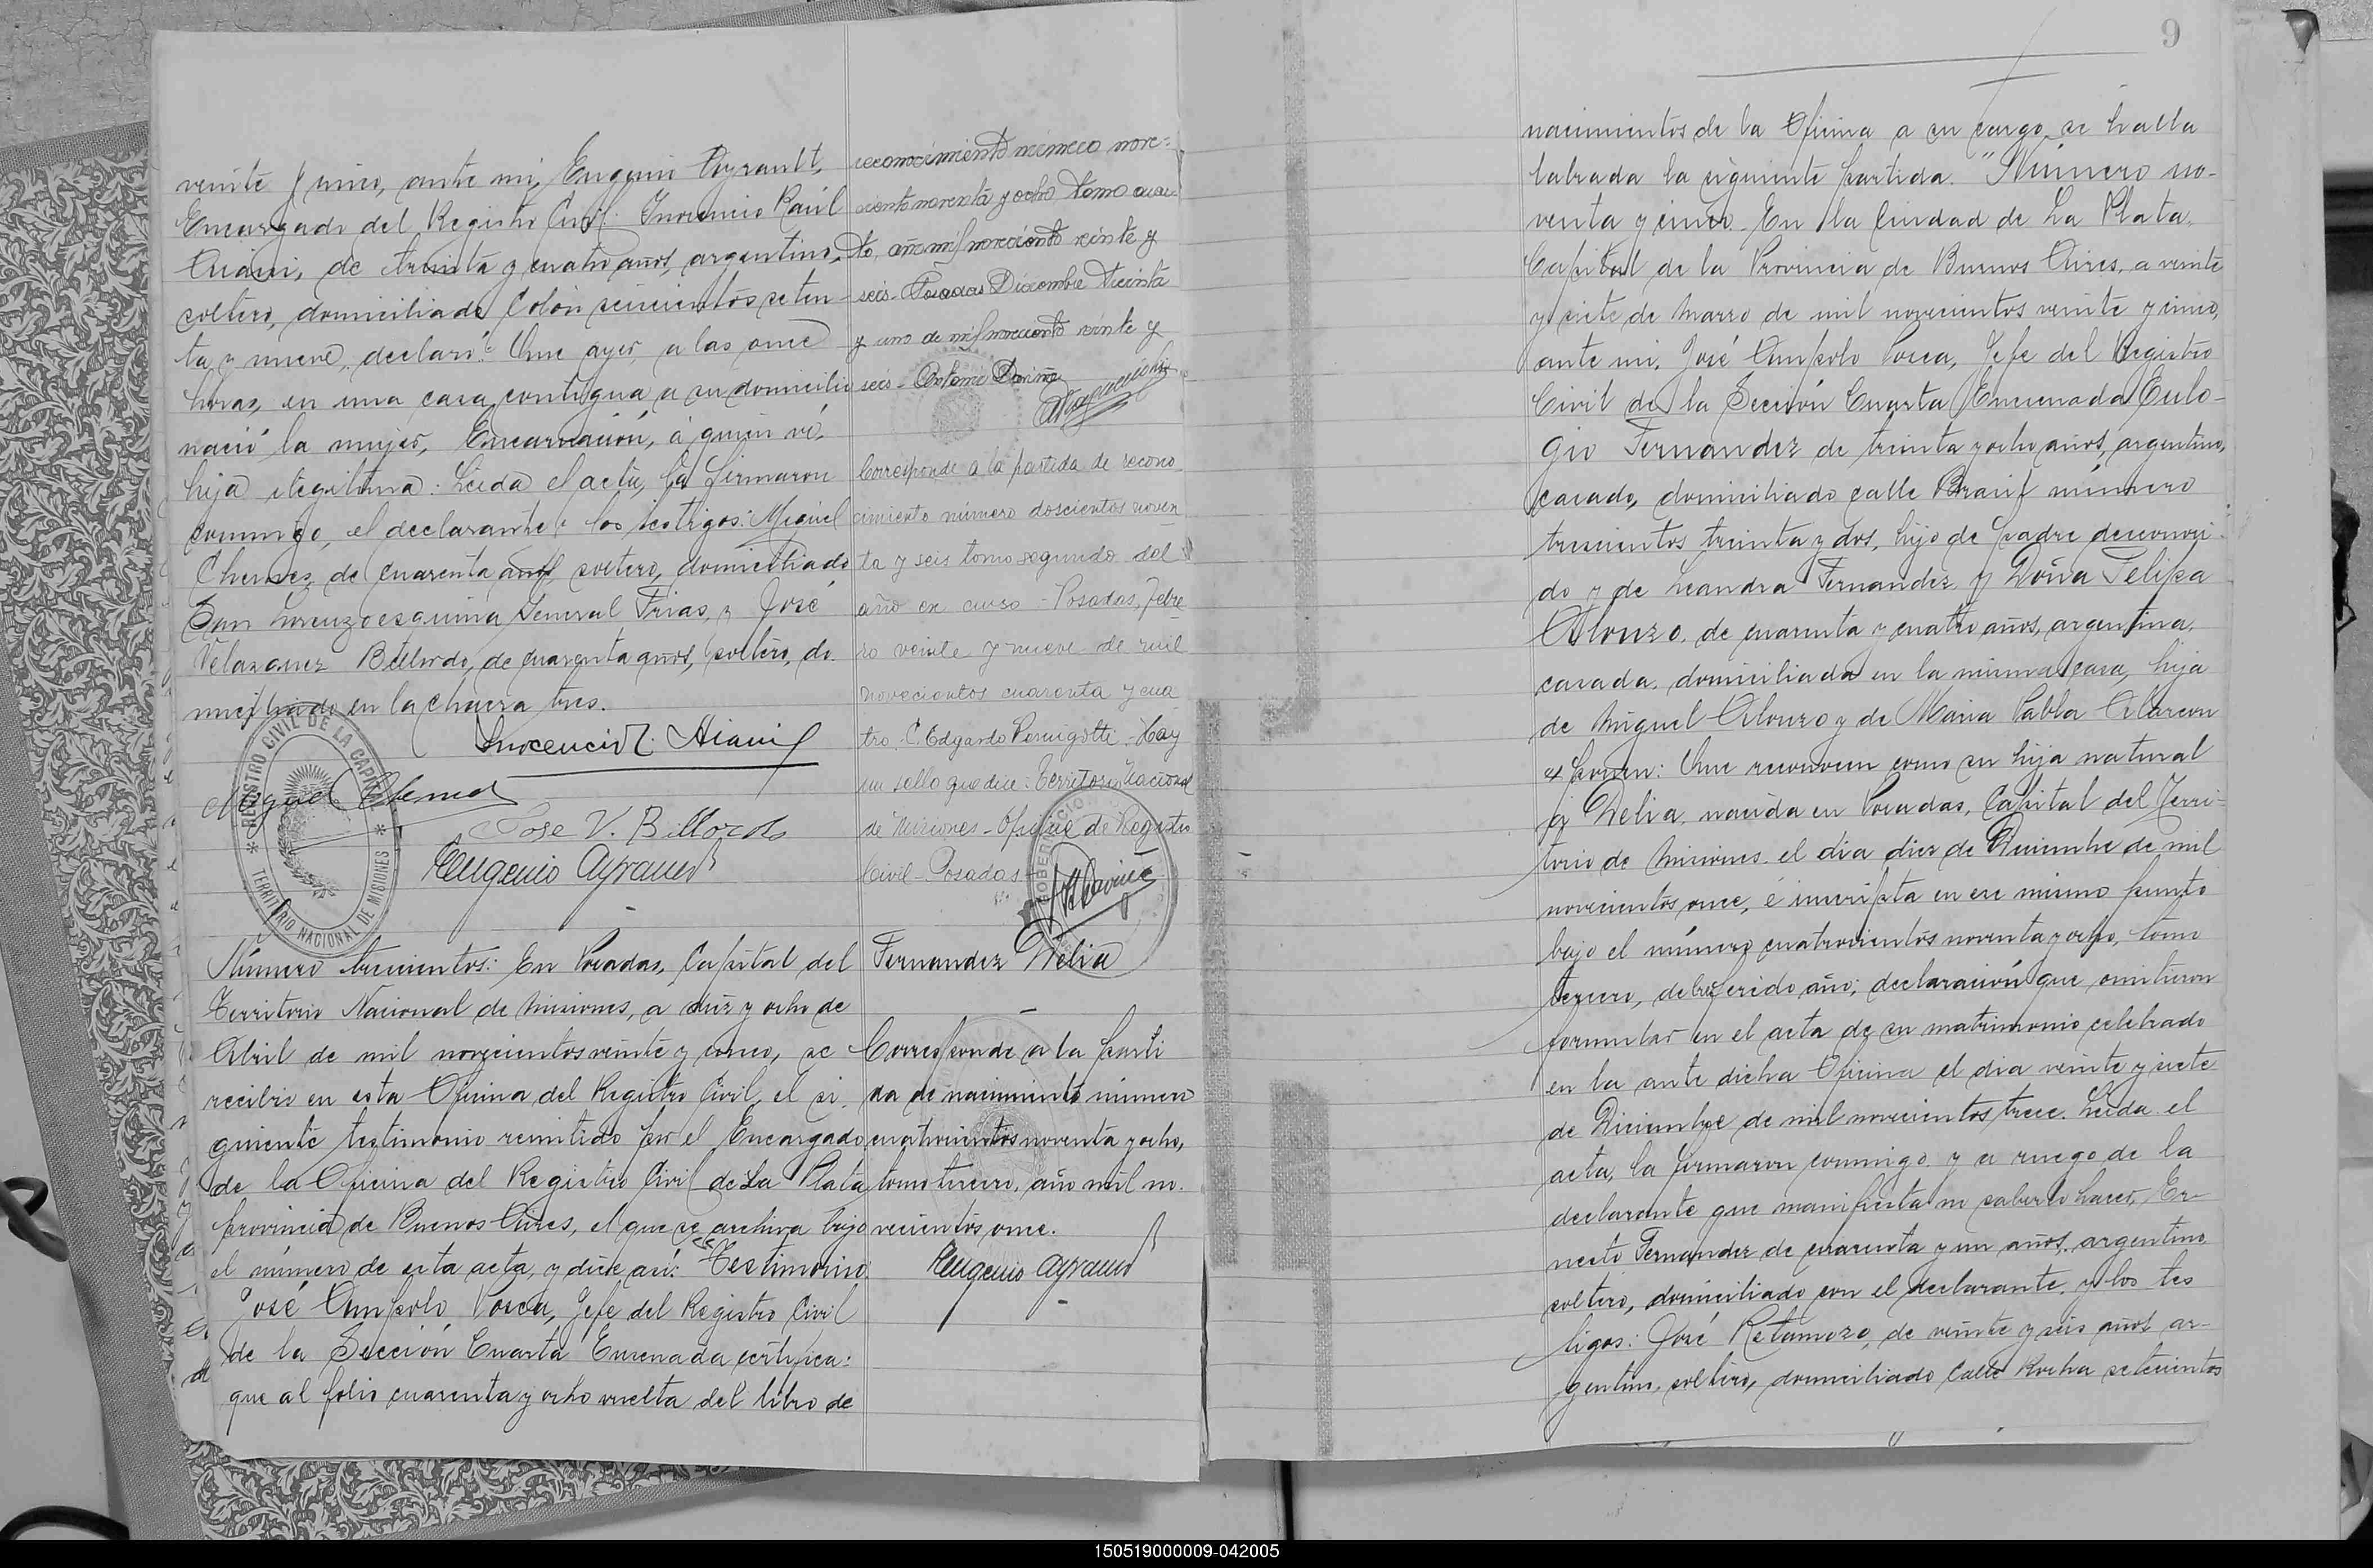 veinte y cinco, ante mi, Eugenio Ayrault,
Encargado del Registro Civil: Inocencio Raúl
de treinta y cuatro años, argentino,
soltero, domiciliado Colón seiscientos seten
ta y nueve, declaró: Que ayer, a las once
horas, en una casa contigua a su domicilio
nació la mujer, Encarnación, á quien vó,
hija ilegitima: Leida el acta, la firmaron
conmigo, el declarante y los testigos: Miguel
de cuarenta años soltero, domiciliado
San Lorenzo esquina General Frias, y José
Velazquez Billordo, de cuarenta años, soltero, do
miciliado en la chacra tres.
REGISTRO CIVIL DE LA CAPITAL
TERRITORIO NACIONAL DE MISIONES
Miguel
Jose V. Billordo
Eugenio Ayrault
Número trescientos: En Posadas, Capital del
Territorio Nacional de Misiones, a diez y ocho de
Abril de mil novecientos veinte y cinco, se
recibió en esta Oficina del Registro Civil, el si
guiente testimonio remitido por el Encargado
de la Oficina del Registro Civil de La Plata
provincia de Buenos Aires, el que se archiva bajo
el número de esta acta, y dice así: "Testimonio:
José Ampolo Posca, Jefe del Registro Civil
de la Sección Cuarta Ensenada certifica:
que al folio cuarenta y ocho vuelta del libro de
reconocimiento número nove=
ciento noventa y ocho tomo cuar
to, año mil novecientos veinte y
seis - Posadas Diciembre treinta
y uno de mil novecientos veinte y
seis -
Corresponde a la partida de recono
cimiento número doscientos noven
ta y seis tomo segundo del
año en curso - Posadas, Febre
ro veinte y nueve de mil
novecientos cuarenta y cua
tro. C. Edgardo Pernigotti - Hay
un sello que dice: Territorio Nacional
de Misiones - Oficina de Registro
Civil - Posadas -
Fernandez Delia
Corresponde a la parti
da de nacimiento número
cuatrocientos noventa y ocho,
tomo tercero, año mil no
vecientos once.
Eugenio Ayrault
9
nacimientos de la Oficina a su cargo, se halla
labrada la siguiente partida. "Número no-
venta y cinco. En la Ciudad de La Plata,
Capital de la Provincia de Buenos Aires, a veinte
y siete de Marzo de mil novecientos veinte y cinco,
ante mi, José Ampolo Posca, Jefe del Registro
Civil de la Sección Cuarta Ensenada Eulo-
gio Fernandez de treinta y ocho años, argentino,
casado, domiciliado calle Brasil número
trescientos treinta y dos, hijo de padre desconoci
do y de Leandra Fernandez y Doña Felipa
Alonzo, de cuarenta y cuatro años, argentina,
casada, domiciliada en la misma casa, hija
de Miguel Alonzo y de Maria Pabla Alarcon
exponen: Que reconocen como su hija natural
a Delia, nacida en Posadas, Capital del Terri-
torio de Misiones, el día diez de Diciembre de mil
novecientos once, é inscripta en ese mismo punto
bajo el número cuatrocientos noventa y ocho, tomo
tercero, del referido año; declaración que omitieron
formular en el acta de su matrimonio celebrado
en la ante dicha Oficina el dia veinte y siete
de Diciembre de mil novecientos trece. Leida el
acta, la firmaron conmigo y a ruego de la
declarante que manifiesta no saberlo hacer, Er-
nesto Fernandez de cuarenta y un años, argentino
soltero, domiciliado con el declarante, y los tes
tigos: José Retamozo, de veinte y seis años ar-
gentino, soltero, domiciliado Calle Rocha setecientos
150519000009-042005